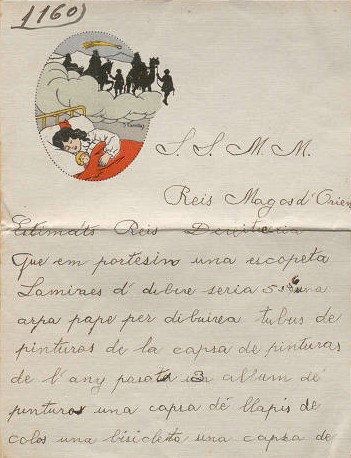 1160
S. S. M. M.
Reis Magos d'Orien
Estimats Reis
Que em portesin una escopeta
Lamines d' una
arpa pape per dibuixa tubus de
pinturas de la capsa de pinturas
de l'any pasat un album dé
pinturas una capsa dé llapis de
colos una bisicleta una capsa de